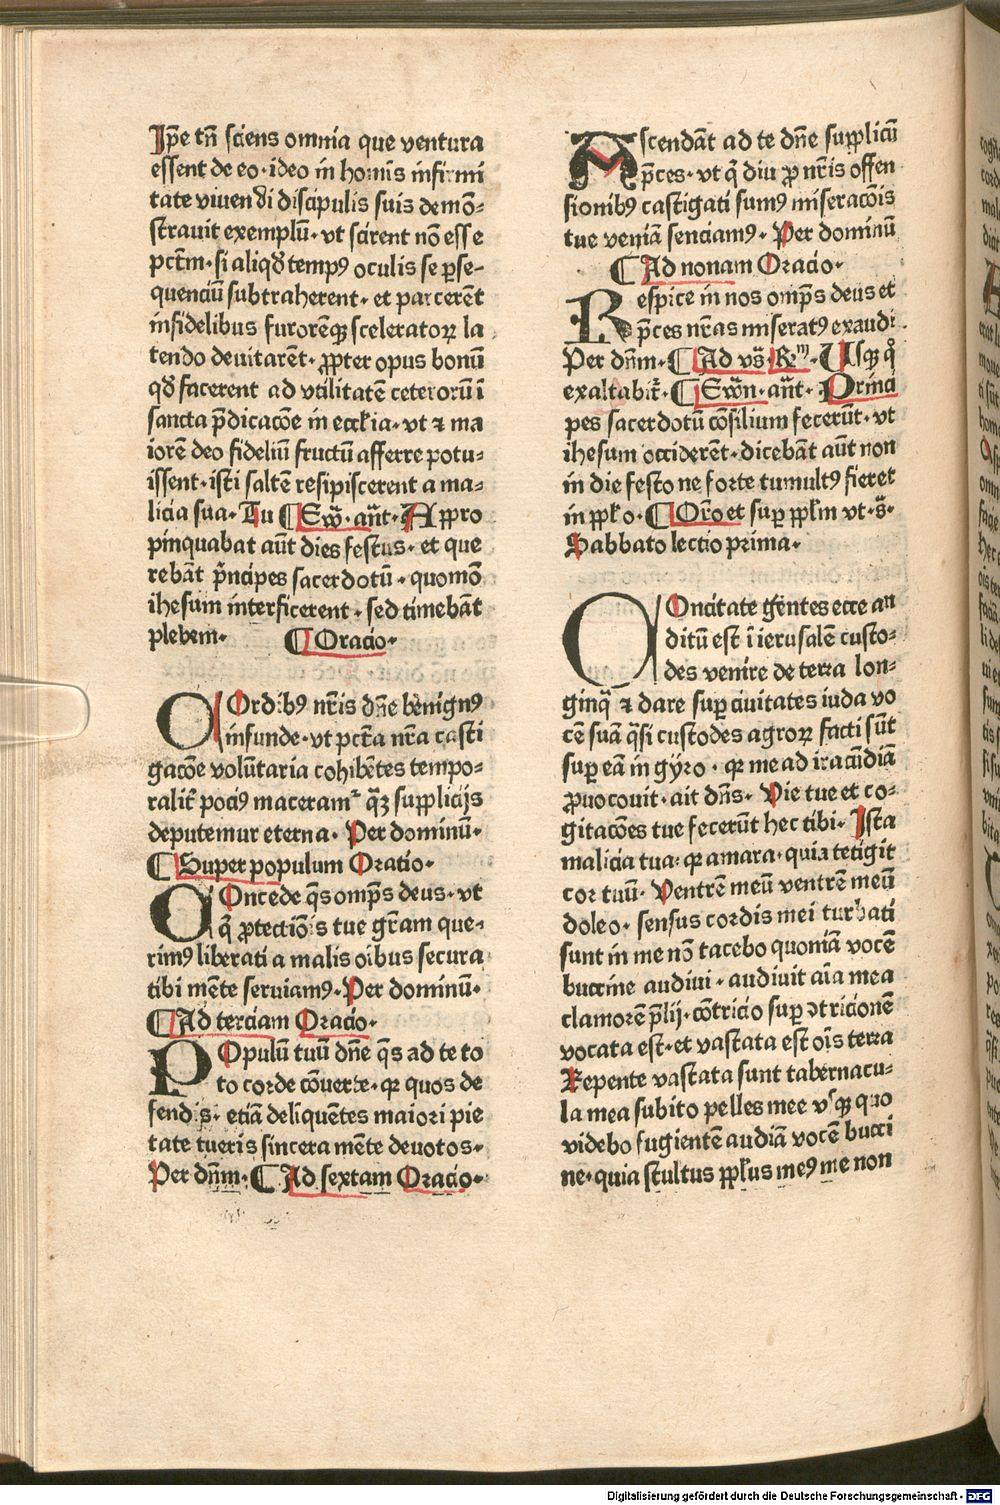 Ip̄e tn̄ sciens omnia que ventura
essent de eo· ideo in homīs infirmi
tate viuendi discipulis suis demō⸗
strauit exemplū· vt scirent nō esse
pctm̄· si aliqd̄ tempꝰ oculis se ꝑse⸗
quenciū subtraherent· et parcerēt
infidelibus furorēqꝫ sceleratoꝝ la
tendo deuitarēt· ꝓpter opus bonū
qd̄ facerent ad vtilitatē ceterorū ī
sancta p̄dicacōe in eccl̄ia· vt ⁊ ma
iorē deo fideliū fructū afferre potu⸗
issent· isti saltē resipiscerent a ma⸗
licia sua· Tu ¶ Ew̄· an̄t· Appro
pinquabat aūt dies festus· et que
rebāt p̄ncipes sacerdotū· quomō
ihesum interficerent· sed timebāt
plebem· ¶ Oracio·
COrdibꝰ nr̄is dn̄e benignꝰ
infunde· vt pctā nr̄a casti
gacōe volūtaria cohibētes tempo⸗
ralit̄ pociꝰ maceramᷣ qꝫ̄ supplicijs
deputemur eterna· Per dominū·
¶ Super populum Oratio·
COncede qs̄ omp̄s deus· vt
q̄ ꝓtectiōis tue gr̄am que⸗
rimꝰ liberati a malis oībus secura
tibi mēte seruiamꝰ· Per dominū·
¶ Ad terciam Oracio·
POpulū tuū dn̄e qs̄ ad te to
to corde cōuerte· qꝛ quos de
fendis· etiā deliquētes maiori pie
tate tueris sincera mēte deuotos·
Per dn̄m· ¶ Ad sextam Oracio·
Ascendāt ad te dn̄e supplicū
p̄ces· vt q̄ diu ꝓ nr̄is offen
sionibꝰ castigati sumꝰ miseracōis
tue veniā senciamꝰ· Per dominū
¶ Ad nonam Oracio·
Respice in nos omp̄s deus et
p̄ces nr̄as miseratꝰ exaudi·
Per dn̄m· ¶ Ad vs̄· Rm· Usqꝫ qͦ
exaltabit̄· ¶ Ew̄n· an̄t· Princi
pes sacerdotū cōsilium fecerūt· vt
ihesum occiderēt· dicebāt aūt non
in die festo ne forte tumultꝰ fieret
in ppl̄o· ¶ Or̄o et suꝑ ppl̄m vt· s̄·
Sabbato lectio prima·
COncitate gētes ecce an
ditū est ī ierusalē custo⸗
des venire de terra lon⸗
ginq̄ ⁊ dare suꝑ ciuitates iuda vo
cē suā q̄si custodes agroꝝ facti sūt
suꝑ eā in gyro· qꝛ me ad iracūdiā
ꝓuocouit· ait dn̄s· Vie tue et co⸗
gitacōes tue fecerūt hec tibi· Ista
malicia tua· qꝛ amara· quia tetigit
cor tuū· Ventrē meū ventrē meū
doleo· sensus cordis mei turbati
sunt in me nō tacebo quoniā vocē
buccine audiui· audiuit aīa mea
clamorē p̄lij· cōtricio suꝑ ꝯtricionē
vocata est· et vastata est oīs terra
Repente vastata sunt tabernacu⸗
la mea subito pelles mee vsqꝫ quo
videbo fugientē audiā vocē bucci
ne· quia stultus ppl̄us meꝰ me non
Digitalisierung gefördert durch die Deutsche Forschungsgemeinschaft - DFG